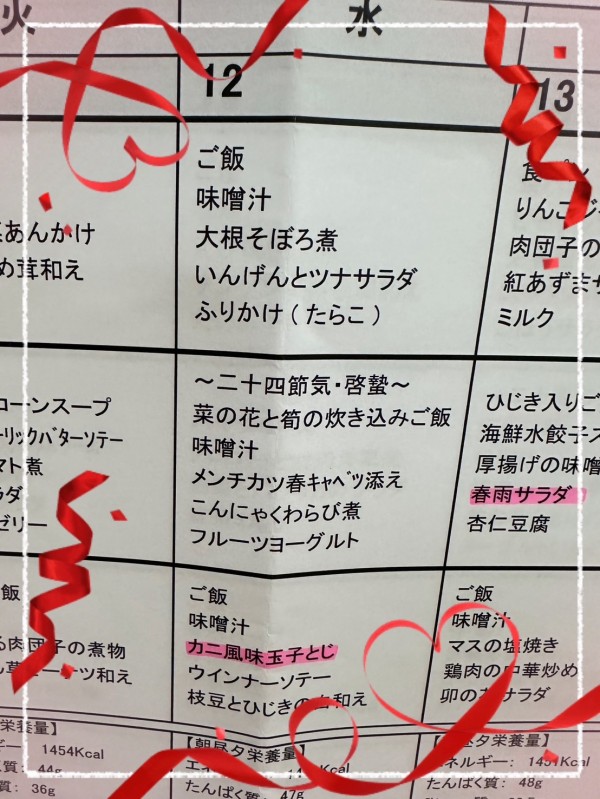 火
あんかけ
め茸和え
コーンスープ
ーリックバターソテー
マト煮
ラダ
ゼリー
飯
る肉団子の煮物
ツ和え
栄養量】
ギー： 1454Kcal
質： 44g
質： 36g
水
12
ご飯
味噌汁
大根そぼろ煮
いんげんとツナサラダ
ふりかけ（たらこ）
～二十四節気・啓蟄～
菜の花と筍の炊き込みご飯
味噌汁
メンチカツ春キャベツ添え
こんにゃくわらび煮
フルーツヨーグルト
ご飯
味噌汁
カニ風味玉子とじ
ウインナーソテー
枝豆とひじきの和え
【朝昼夕栄養量】
Kcal
たんぱく質： 47g
13
食パン
りんごジ
肉団子の
紅あずまサ
ミルク
ひじき入りご
海鮮水餃子ス
厚揚げの味噌
春雨サラダ
杏仁豆腐
ご飯
味噌汁
マスの塩焼き
鶏肉の中華炒め
卯の花サラダ
昼夕栄養量】
エネルギー： 1451Kcal
たんぱく質： 48g